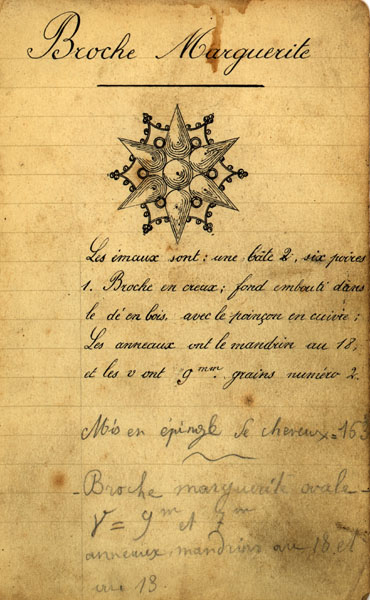 Broche Marguerite
Les imaux sont : une bâte 2, six poires
1. Broche en creux ; fond embouti dans
le dé en bois, avec le poinçon en cuivre ;
Les anneaux ont le mandrin au 18,
et les v ont 9 mm. grains numéro 2.
Mis en épingle de cheveux = 16
- Broche marguerite ovale -
V = 9 m et 7 m
anneaux, mandrins au 18 et
au 13.